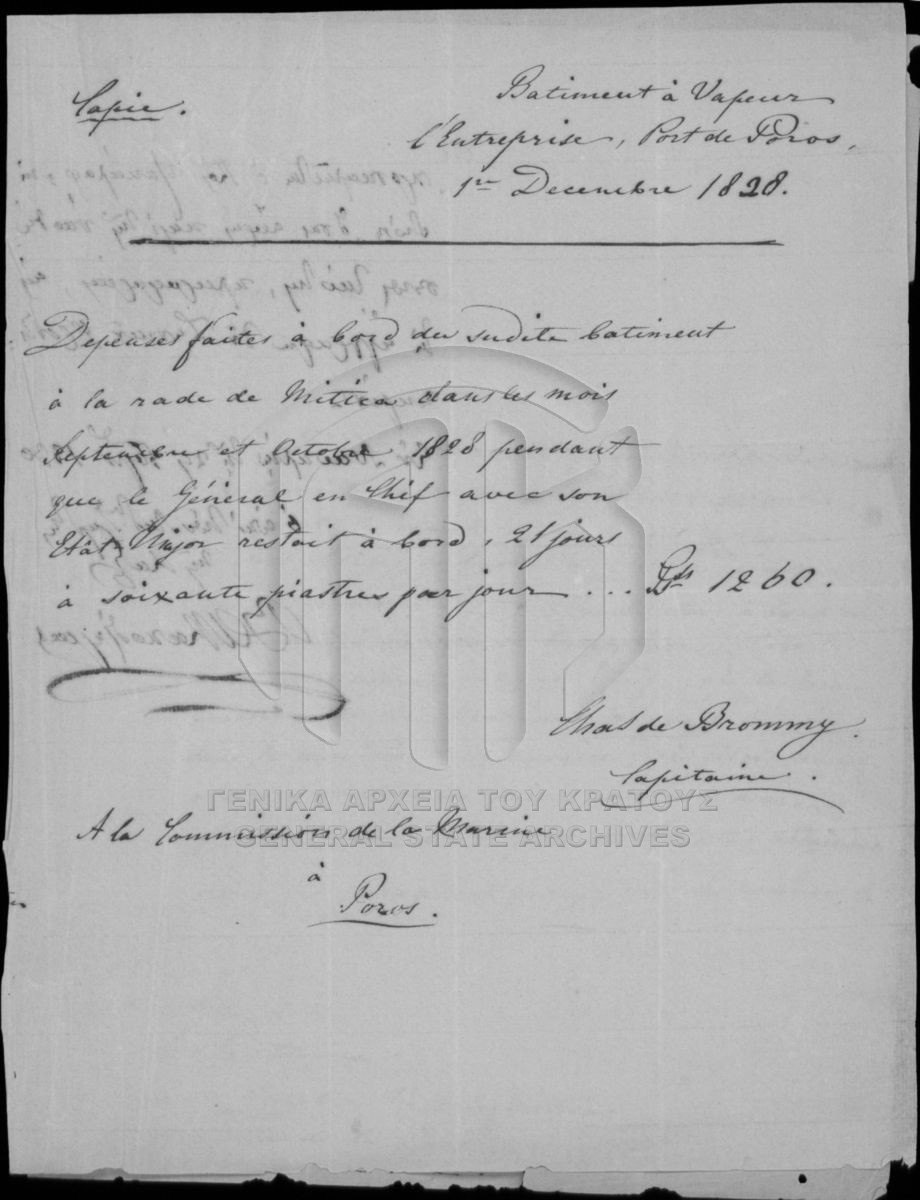 Copie.
Batiment à Vapeur
l'Entreprise, Port de Poros,
1re Decembre 1828.
Depenses faites à bord du sudite batiment
à la rade de Mitica dans les mois
Septembre et Octobre 1828 pendant
que le Général en Chéf avec son
Etât Major restait à bord, 21 jours
à soixante piastres par jour ... Pts 1260.
Chas de Brommy.
Capitaine.
A la Commission de la Marine
à
Poros.
ΓΕΝΙΚΑ ΑΡΧΕΙΑ ΤΟΥ ΚΡΑΤΟΥΣ
GENERAL STATE ARCHIVES